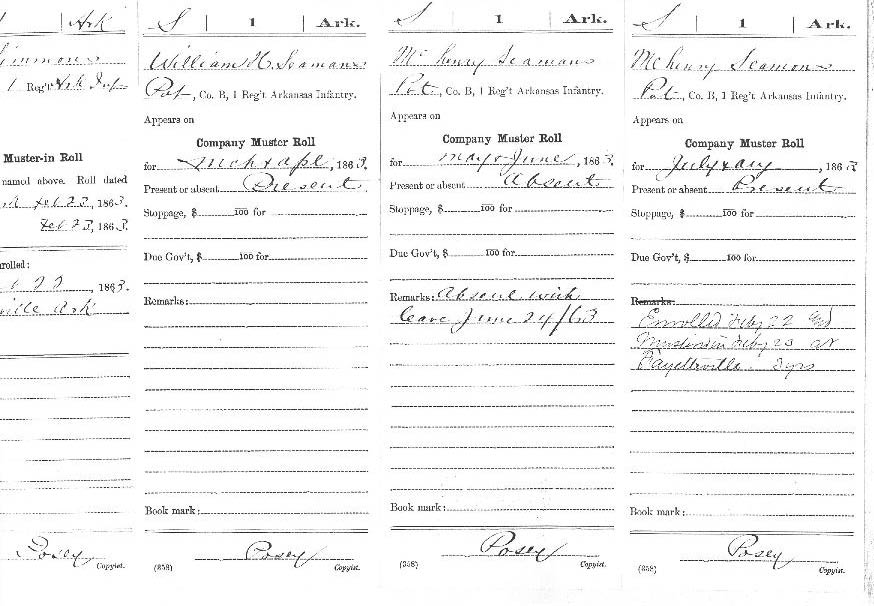 Ark
Simmons
1 Reg't Ark Inf
Muster-in Roll
named above. Roll dated
Feb 23, 1863.
Feb 23, 1863.
nrolled:
22, 1863.
ville Ark
Posey
Copyist.
S | 1 | Ark.
William H. Seamans
Pvt, Co. B, 1 Reg't Arkansas Infantry.
Appears on
Company Muster Roll
for Mch & Apl, 1863.
Present or absent Present
Stoppage, $ 100 for
Due Gov't, $ 100 for
Remarks:
Book mark:
Posey
(358) Copyist.
S | 1 | Ark.
Mc henry Seamans
Pvt, Co. B, 1 Reg't Arkansas Infantry.
Appears on
Company Muster Roll
for May & June, 1863.
Present or absent Absent
Stoppage, $ 100 for
Due Gov't, $ 100 for
Remarks: Absent with
leave June 24/63
Book mark:
Posey
(358) Copyist.
S | 1 | Ark.
Mc henry Seamons
Pvt, Co. B, 1 Reg't Arkansas Infantry.
Appears on
Company Muster Roll
for July & Aug, 1863
Present or absent Present
Stoppage, $ 100 for
Due Gov't, $ 100 for
Remarks:
Enrolled Feby 22
Mustered in Feby 23 at
Fayetteville 3 yrs
Book mark:
Posey
(358) Copyist.